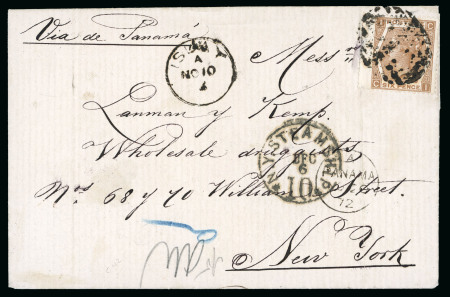 Via de Panamá
Mess
ISLAY
A
NO 10
Lanman y Kemp.
Wholesale druggists,
Nos. 68 y 70 William Street.
New York
N.Y. STEAMSHIP
DEC
6
10
A
PANAMA
72
POSTAGE
SIX PENCE
C
I